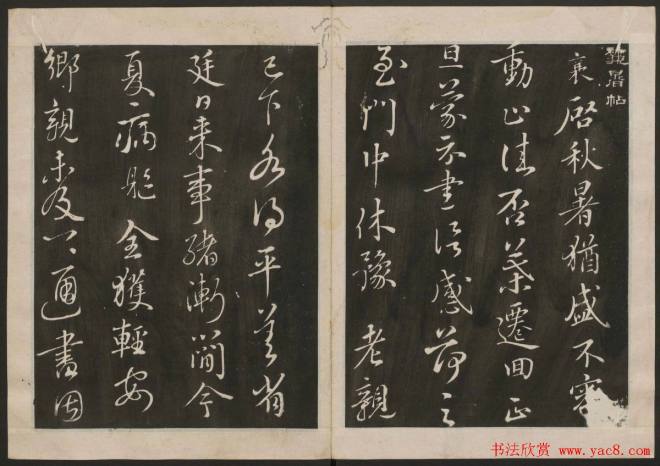 暑帖
襄啓秋暑猶盛不審
動止佳否某還回正
旦蒙示書誨感荷之
至門中休豫老親
已下各得平善省
廷日來事緒漸簡今
夏病軀全獲輕安
鄉親未及一一通書因
书法欣赏 www.yac8.com